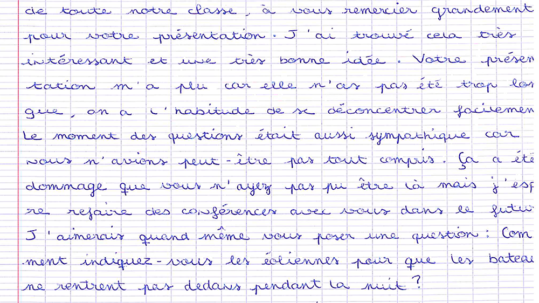 de toute notre classe, à vous remercier grandement
pour votre présentation. J'ai trouvé cela très
intéressant et une très bonne idée. Votre présen
tation m'a plu car elle n'as pas été trop lon
gue, on a l'habitude de se déconcentrer facilemen
Le moment des questions était aussi sympathique car
nous n'avions peut-être pas tout compris. Ça a été
dommage que vous n'ayez pas pu être là mais j'esp
re refaire des conférences avec vous dans le futur
J'aimerais quand même vous poser une question : Com
ment indiquez-vous les éoliennes pour que les bateau
ne rentrent pas dedans pendant la nuit ?